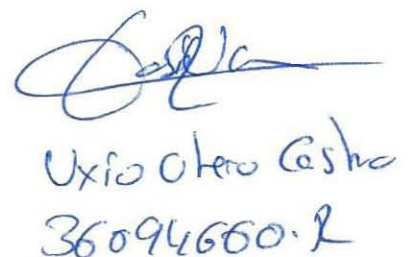 Uxío Otero Castro
36094660.R